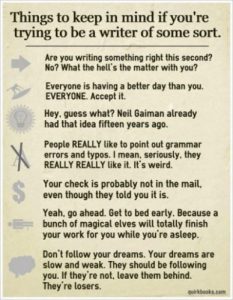 Things to keep in mind if you're
trying to be a writer of some sort.
Are you writing something right this second?
No? What the hell's the matter with you?
Everyone is having a better day than you.
EVERYONE. Accept it.
Hey, guess what? Neil Gaiman already
had that idea fifteen years ago.
People REALLY like to point out grammar
errors and typos. I mean, seriously, they
REALLY REALLY like it. It's weird.
Your check is probably not in the mail,
even though they told you it is.
Yeah, go ahead. Get to bed early. Because a
bunch of magical elves will totally finish
your work for you while you're asleep.
Don't follow your dreams. Your dreams are
slow and weak. They should be following
you. If they're not, leave them behind.
They're losers.
quirkbooks.com